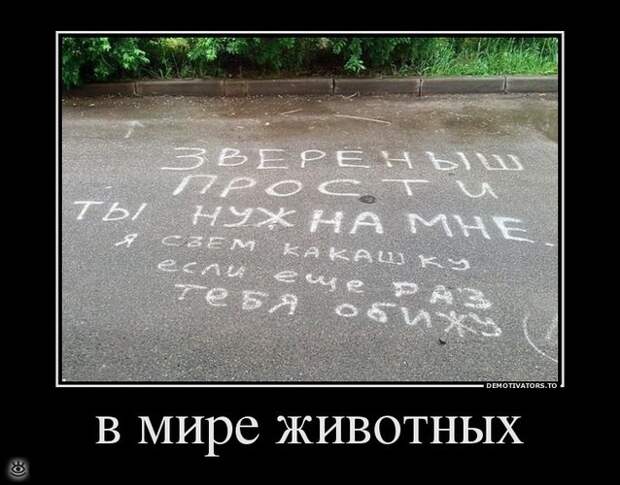 ЗВЕРЕНЫШ
ПРОСТИ
ТЫ НУЖНА МНЕ.
Я СЗЕМ КАКАШКУ
если еще РАЗ
ТЕБЯ ОБИЖУ
DEMOTIVATORS.TO
в мире животных